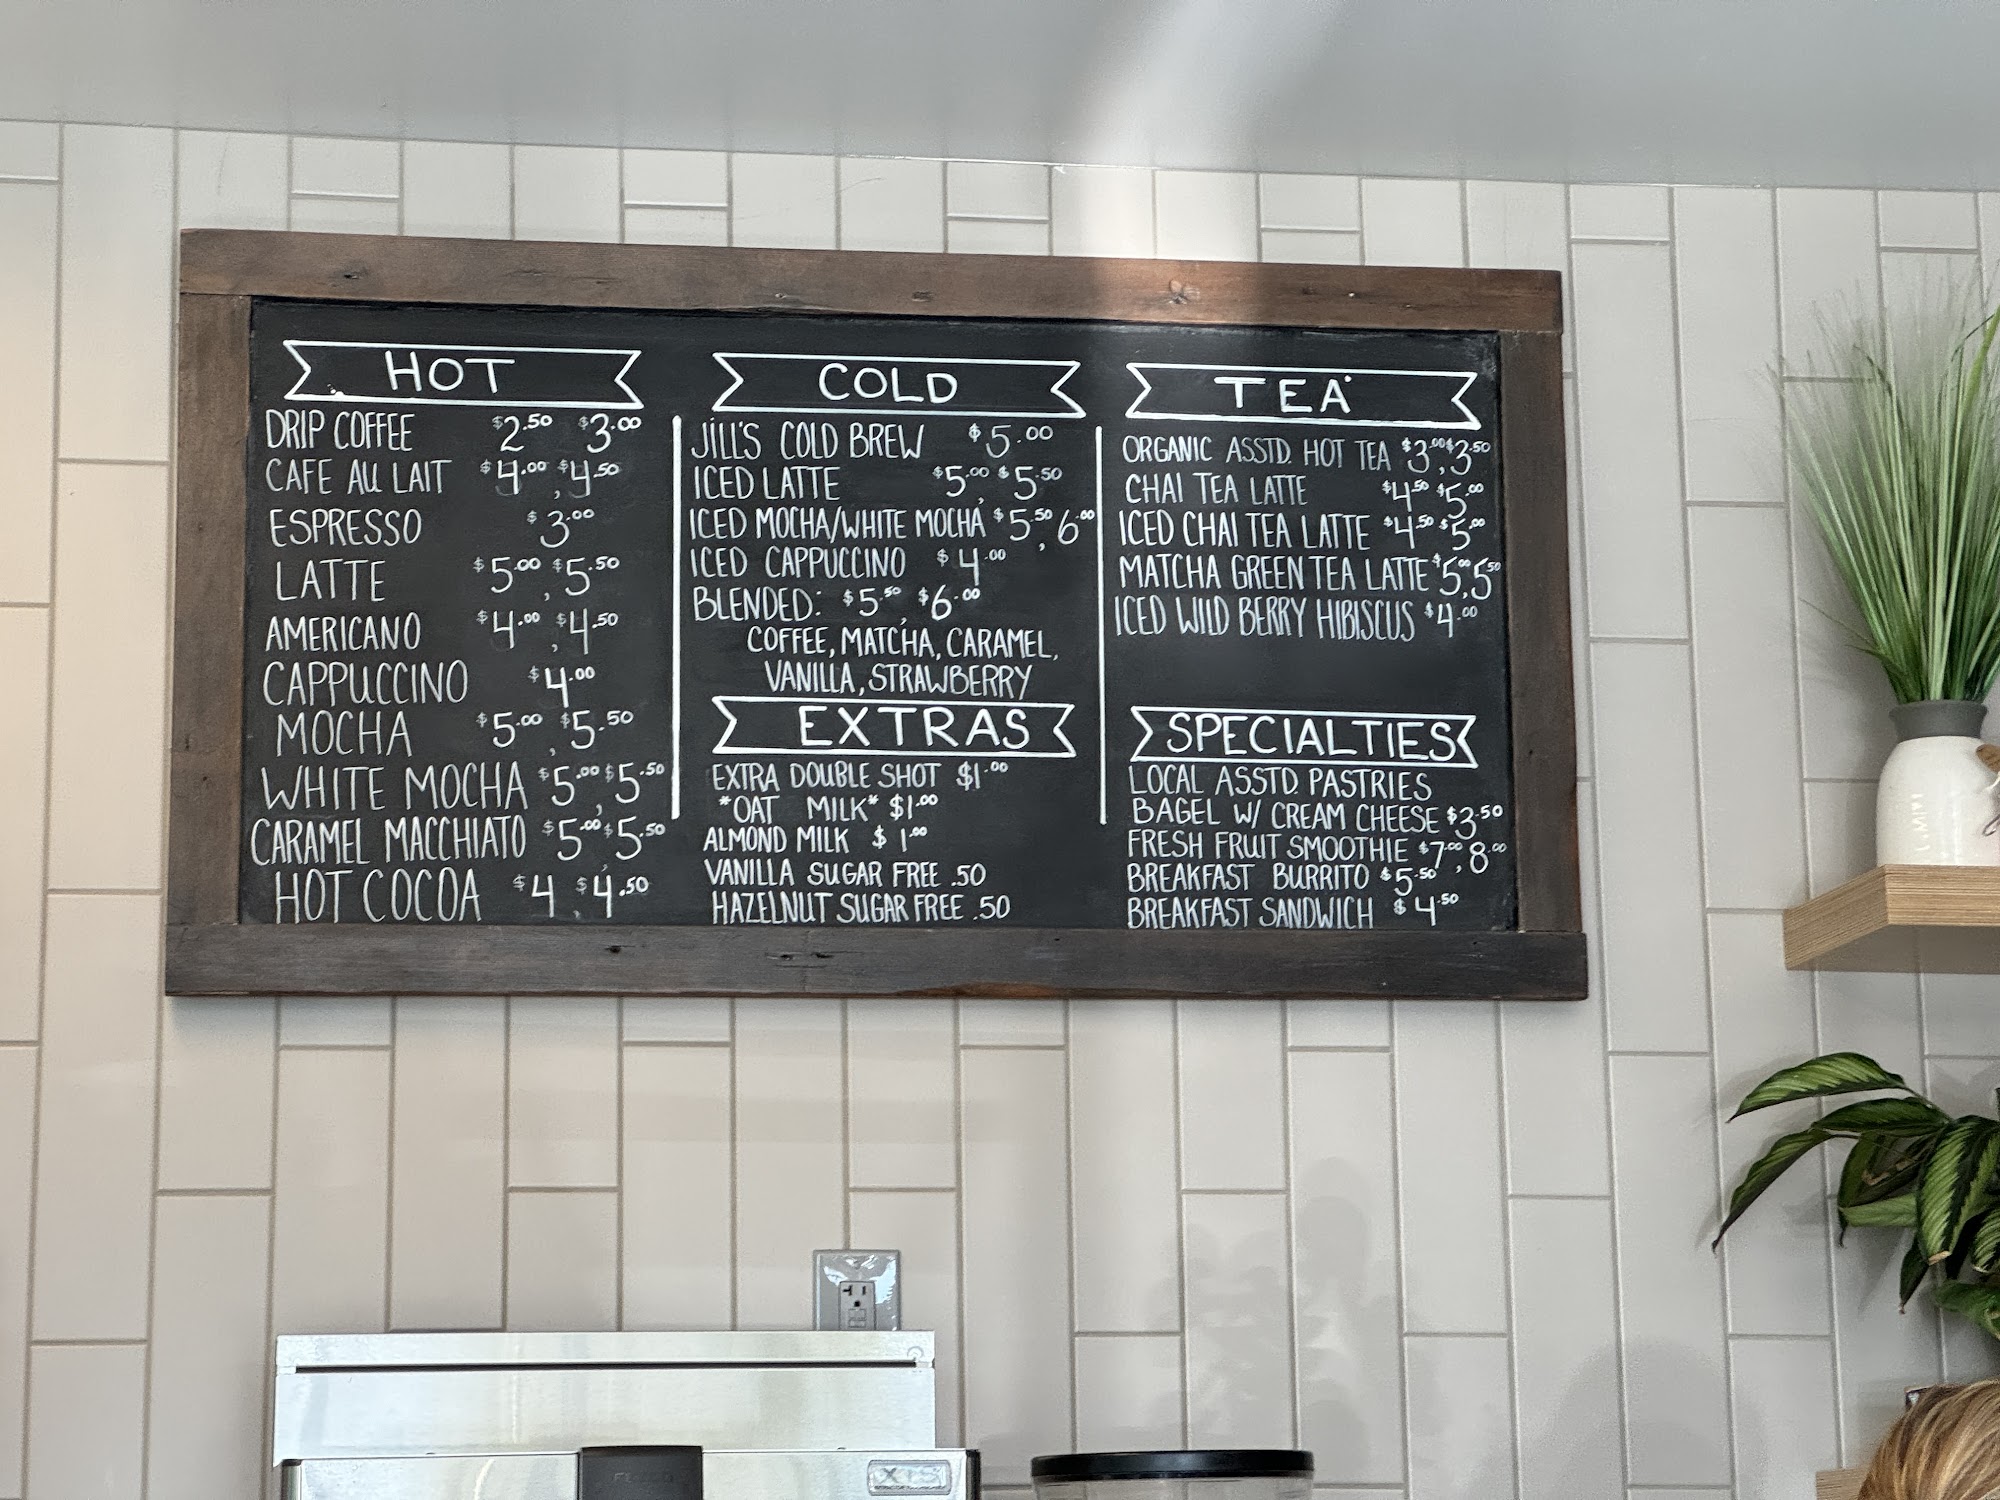 HOT
DRIP COFFEE $2.50 $3.00
CAFE AU LAIT $4.00, $4.50
ESPRESSO $3.00
LATTE $5.00, $5.50
AMERICANO $4.00, $4.50
CAPPUCCINO $4.00
MOCHA $5.00, $5.50
WHITE MOCHA $5.00, $5.50
CARAMEL MACCHIATO $5.00, $5.50
HOT COCOA $4, $4.50
COLD
JILL'S COLD BREW $5.00
ICED LATTE $5.00, $5.50
ICED MOCHA/WHITE MOCHA $5.50, 6.00
ICED CAPPUCCINO $4.00
BLENDED: $5.50, $6.00
COFFEE, MATCHA, CARAMEL,
VANILLA, STRAWBERRY
EXTRAS
EXTRA DOUBLE SHOT $1.00
*OAT MILK* $1.00
ALMOND MILK $1.00
VANILLA SUGAR FREE .50
HAZELNUT SUGAR FREE .50
TEA
ORGANIC ASSTD. HOT TEA $3.00, $3.50
CHAI TEA LATTE $4.50, $5.00
ICED CHAI TEA LATTE $4.50, $5.00
MATCHA GREEN TEA LATTE $5.00, 5.50
ICED WILD BERRY HIBISCUS $4.00
SPECIALTIES
LOCAL ASSTD. PASTRIES
BAGEL W/ CREAM CHEESE $3.50
FRESH FRUIT SMOOTHIE $7.00, 8.00
BREAKFAST BURRITO $5.50
BREAKFAST SANDWICH $4.50
XTS